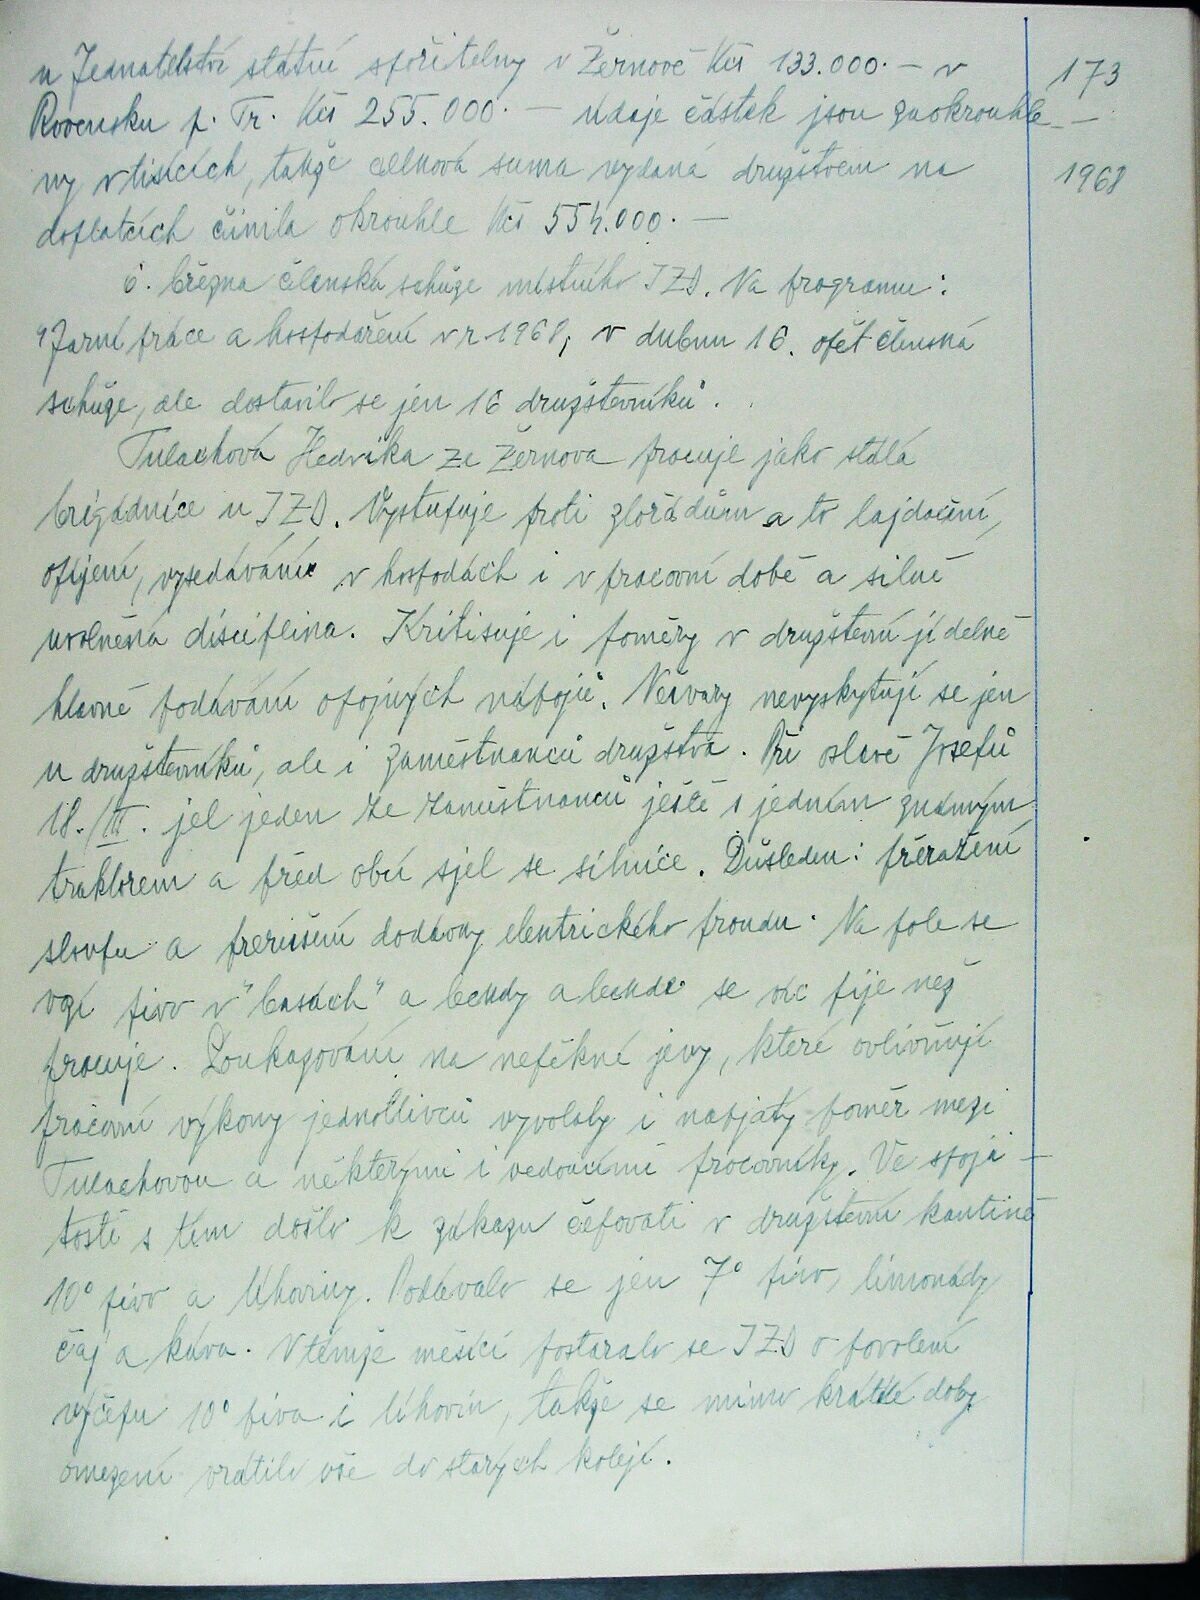 u Jednatelství státní spořitelny v Žernově Kčs 133.000.— v
173
Rovensku p. Tr. Kčs 255.000.— údaje částek jsou zaokrouhle-
ny v tisících, takže celková suma vydaná družstvem na
1968
doplatcích činila okrouhle Kčs 554.000.—
6. března členská schůze místního JZD. Na programu:
"Jarní práce a hospodaření v r. 1968, v dubnu 16. opět členská
schůze, ale dostavilo se jen 16 družstevníků.
Tulachová Hedvika ze Žernova pracuje jako stálá
brigádnice u JZD. Vystupuje proti zlořádům a to lajdáční,
opíjení, vysedávání v hospodách i v pracovní době a silně
uvolněná disciplina. Kritisuje i poměry v družstevní jídelně
hlavně podávání opojných nápojů. Nešvary nevyskytují se jen
u družstevníků, ale i zaměstnanců družstva. Při oslavě Josefů
18./III. jel jeden ze zaměstnanců ještě s jedním známým
traktorem a před obcí sjel se silnice. Důsledek: přeražení
sloupu a přerušení dodávky elektrického proudu. Na pole se
vozí pivo v "basách" a leckdy a leckde se víc pije než
pracuje. Poukazování na nepěkné jevy, které ovlivňují
pracovní výkony jednotlivců vyvolaly i napjatý poměr mezi
Tulachovou a některými i vedoucími pracovníky. Ve spoji-
tosti s tím došlo k zákazu čepovati v družstevní kantině
10° pivo a lihoviny. Podávalo se jen 7° pivo, limonády
čaj a káva. V témže měsíci postaralo se JZD o povolení
výčepu 10° piva i lihovin, takže se mimo krátké doby
omezení vrátilo vše do starých kolejí.